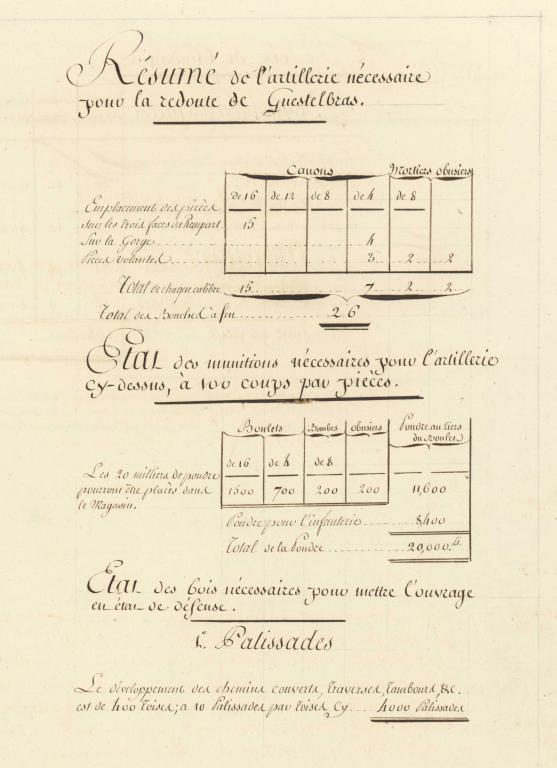 Résumé de l'artillerie nécessaire
pour la redoute de Guestelbras.
Canons Mortiers obusiers
de 16 de 12 de 8 de 4 de 8
Emplacement des pièces
sur les trois faces du Rempart 15
Sur la Gorge 4
Pièces volantes 3 2 2
Total de chaque calibre 15 7 2 2
Total des Bouches à feu 26
Etat des munitions nécessaires pour l'artillerie
cy-dessus, à 100 coups par pièces.
Boulets Bombes obusiers Poudre au tiers
du Boulet
de 16 de 4 de 8
Les 20 milliers de poudre
pourront être placés dans 1500 700 200 200 11,600
le Magasin.
Poudre pour l'infanterie 8,400
Total de la Poudre 20,000.
Etat des bois nécessaires pour mettre l'ouvrage
en état de défense.
Palissades
Le développement des chemins couverts, traverses, Tambours, &c.
est de 400 toises; a 10 Palissades par toises, cy 4000 Palissades